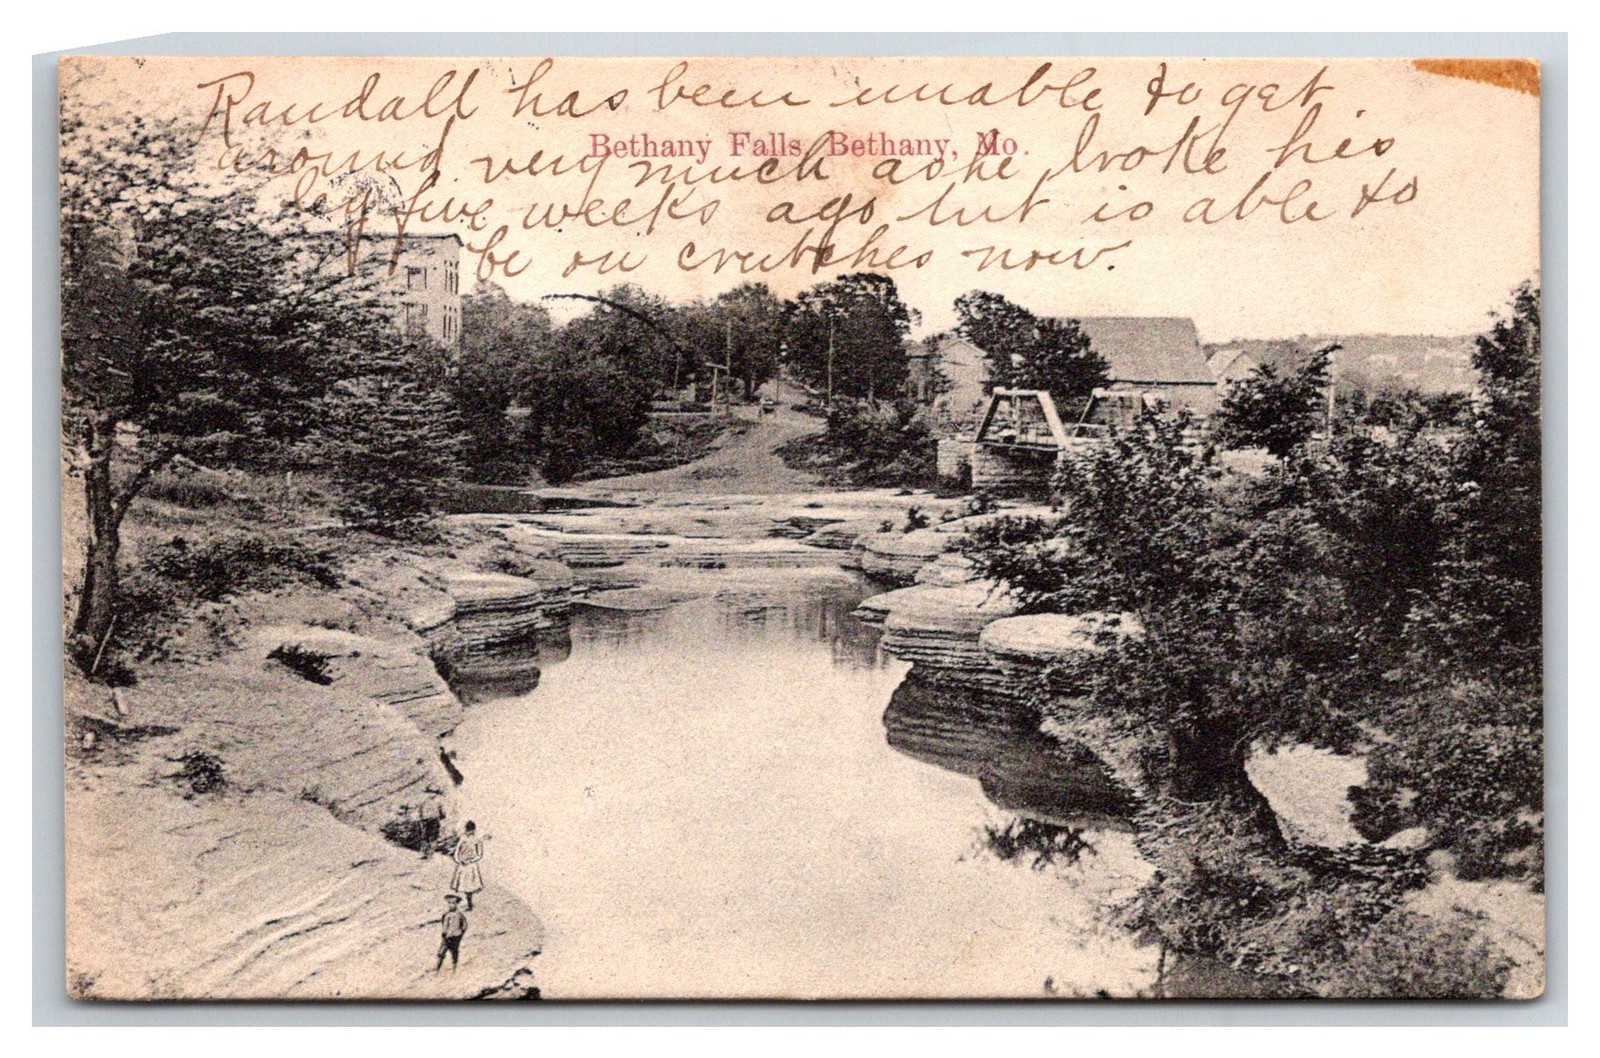 Randall has been unable to get
Bethany Falls, Bethany, Mo.
around very much as he broke his
leg five weeks ago but is able to
be on crutches now.